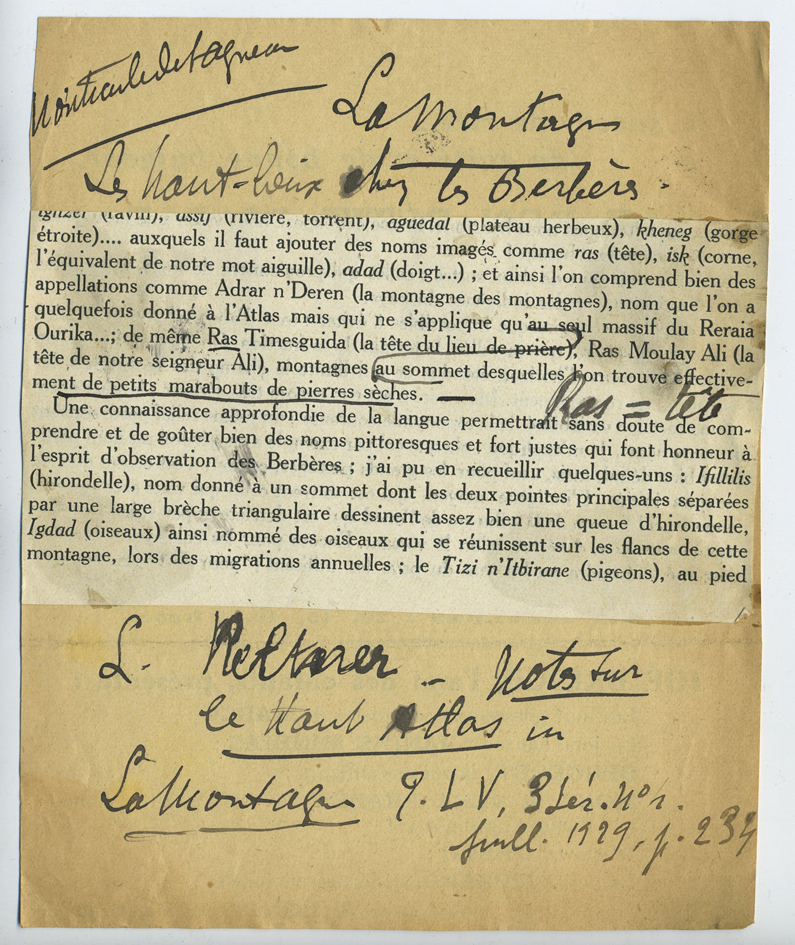 La Montagne
Les haut-lieux chez les Berbères.
ighzer (ravin), assif (rivière, torrent), aguedal (plateau herbeux), kheneg (gorge
étroite).... auxquels il faut ajouter des noms imagés comme ras (tête), isk (corne,
l'équivalent de notre mot aiguille), adad (doigt...) ; et ainsi l'on comprend bien des
appellations comme Adrar n'Deren (la montagne des montagnes), nom que l'on a
quelquefois donné à l'Atlas mais qui ne s'applique qu'au seul massif du Reraia
Ourika...; de même Ras Timesguida (la tête du lieu de prière), Ras Moulay Ali (la
tête de notre seigneur Ali), montagnes au sommet desquelles l'on trouve effective-
ment de petits marabouts de pierres sèches.
Ras = tête
Une connaissance approfondie de la langue permettrait sans doute de com-
prendre et de goûter bien des noms pittoresques et fort justes qui font honneur à
l'esprit d'observation des Berbères ; j'ai pu en recueillir quelques-uns : Ifillilis
(hirondelle), nom donné à un sommet dont les deux pointes principales séparées
par une large brèche triangulaire dessinent assez bien une queue d'hirondelle,
Igdad (oiseaux) ainsi nommé des oiseaux qui se réunissent sur les flancs de cette
montagne, lors des migrations annuelles ; le Tizi n'Itbirane (pigeons), au pied
L. - Notes sur
le Haut Atlas in
La Montagne T. LV, 3 Sér. No 1.
Juill. 1929, p. 234